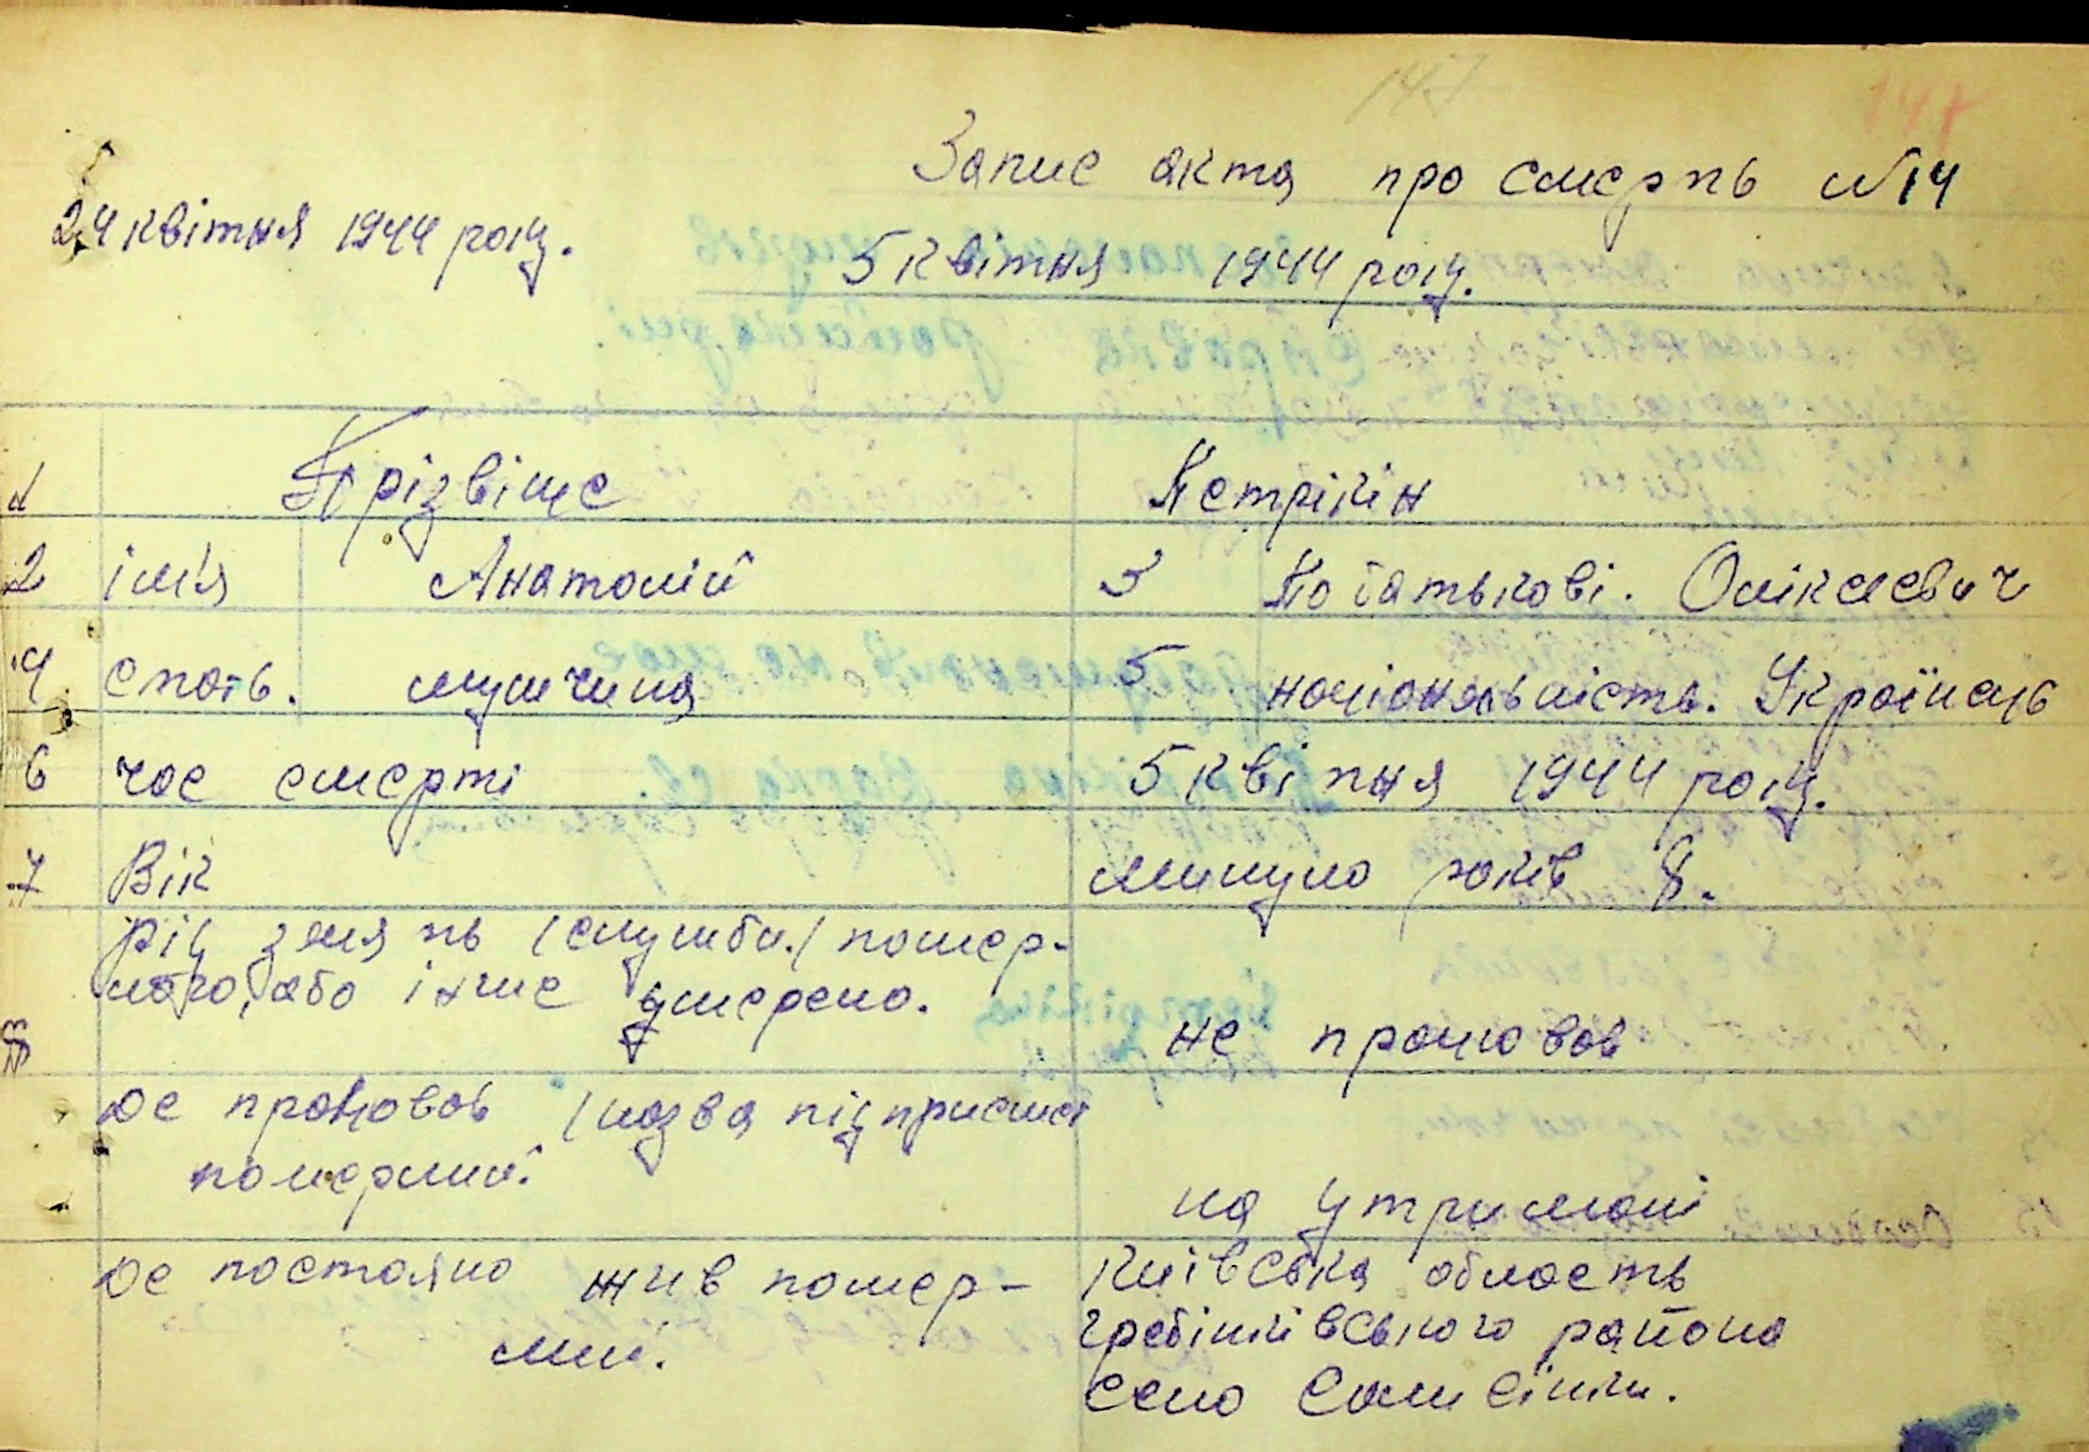 147 147
Запис акта про смерть №14
24 квітня 1944 року.
5 квітня 1944 року.
1 Прізвіще Петрікін
2 ім'я Анатолій 3 По батькові. Оліксієвич
4 стать. мушчина 5 національність. Українець
6 час смерті 5 квітня 1944 року.
7 Вік минуло років 8.
8 рід занять (служби) помер-
лого, або інше джерело.
не працював
де працював (назва підприємст
померлий.
на утримані
де постояно жив помер-
лий.
Київська область
гребінківського района
село Саливінки.